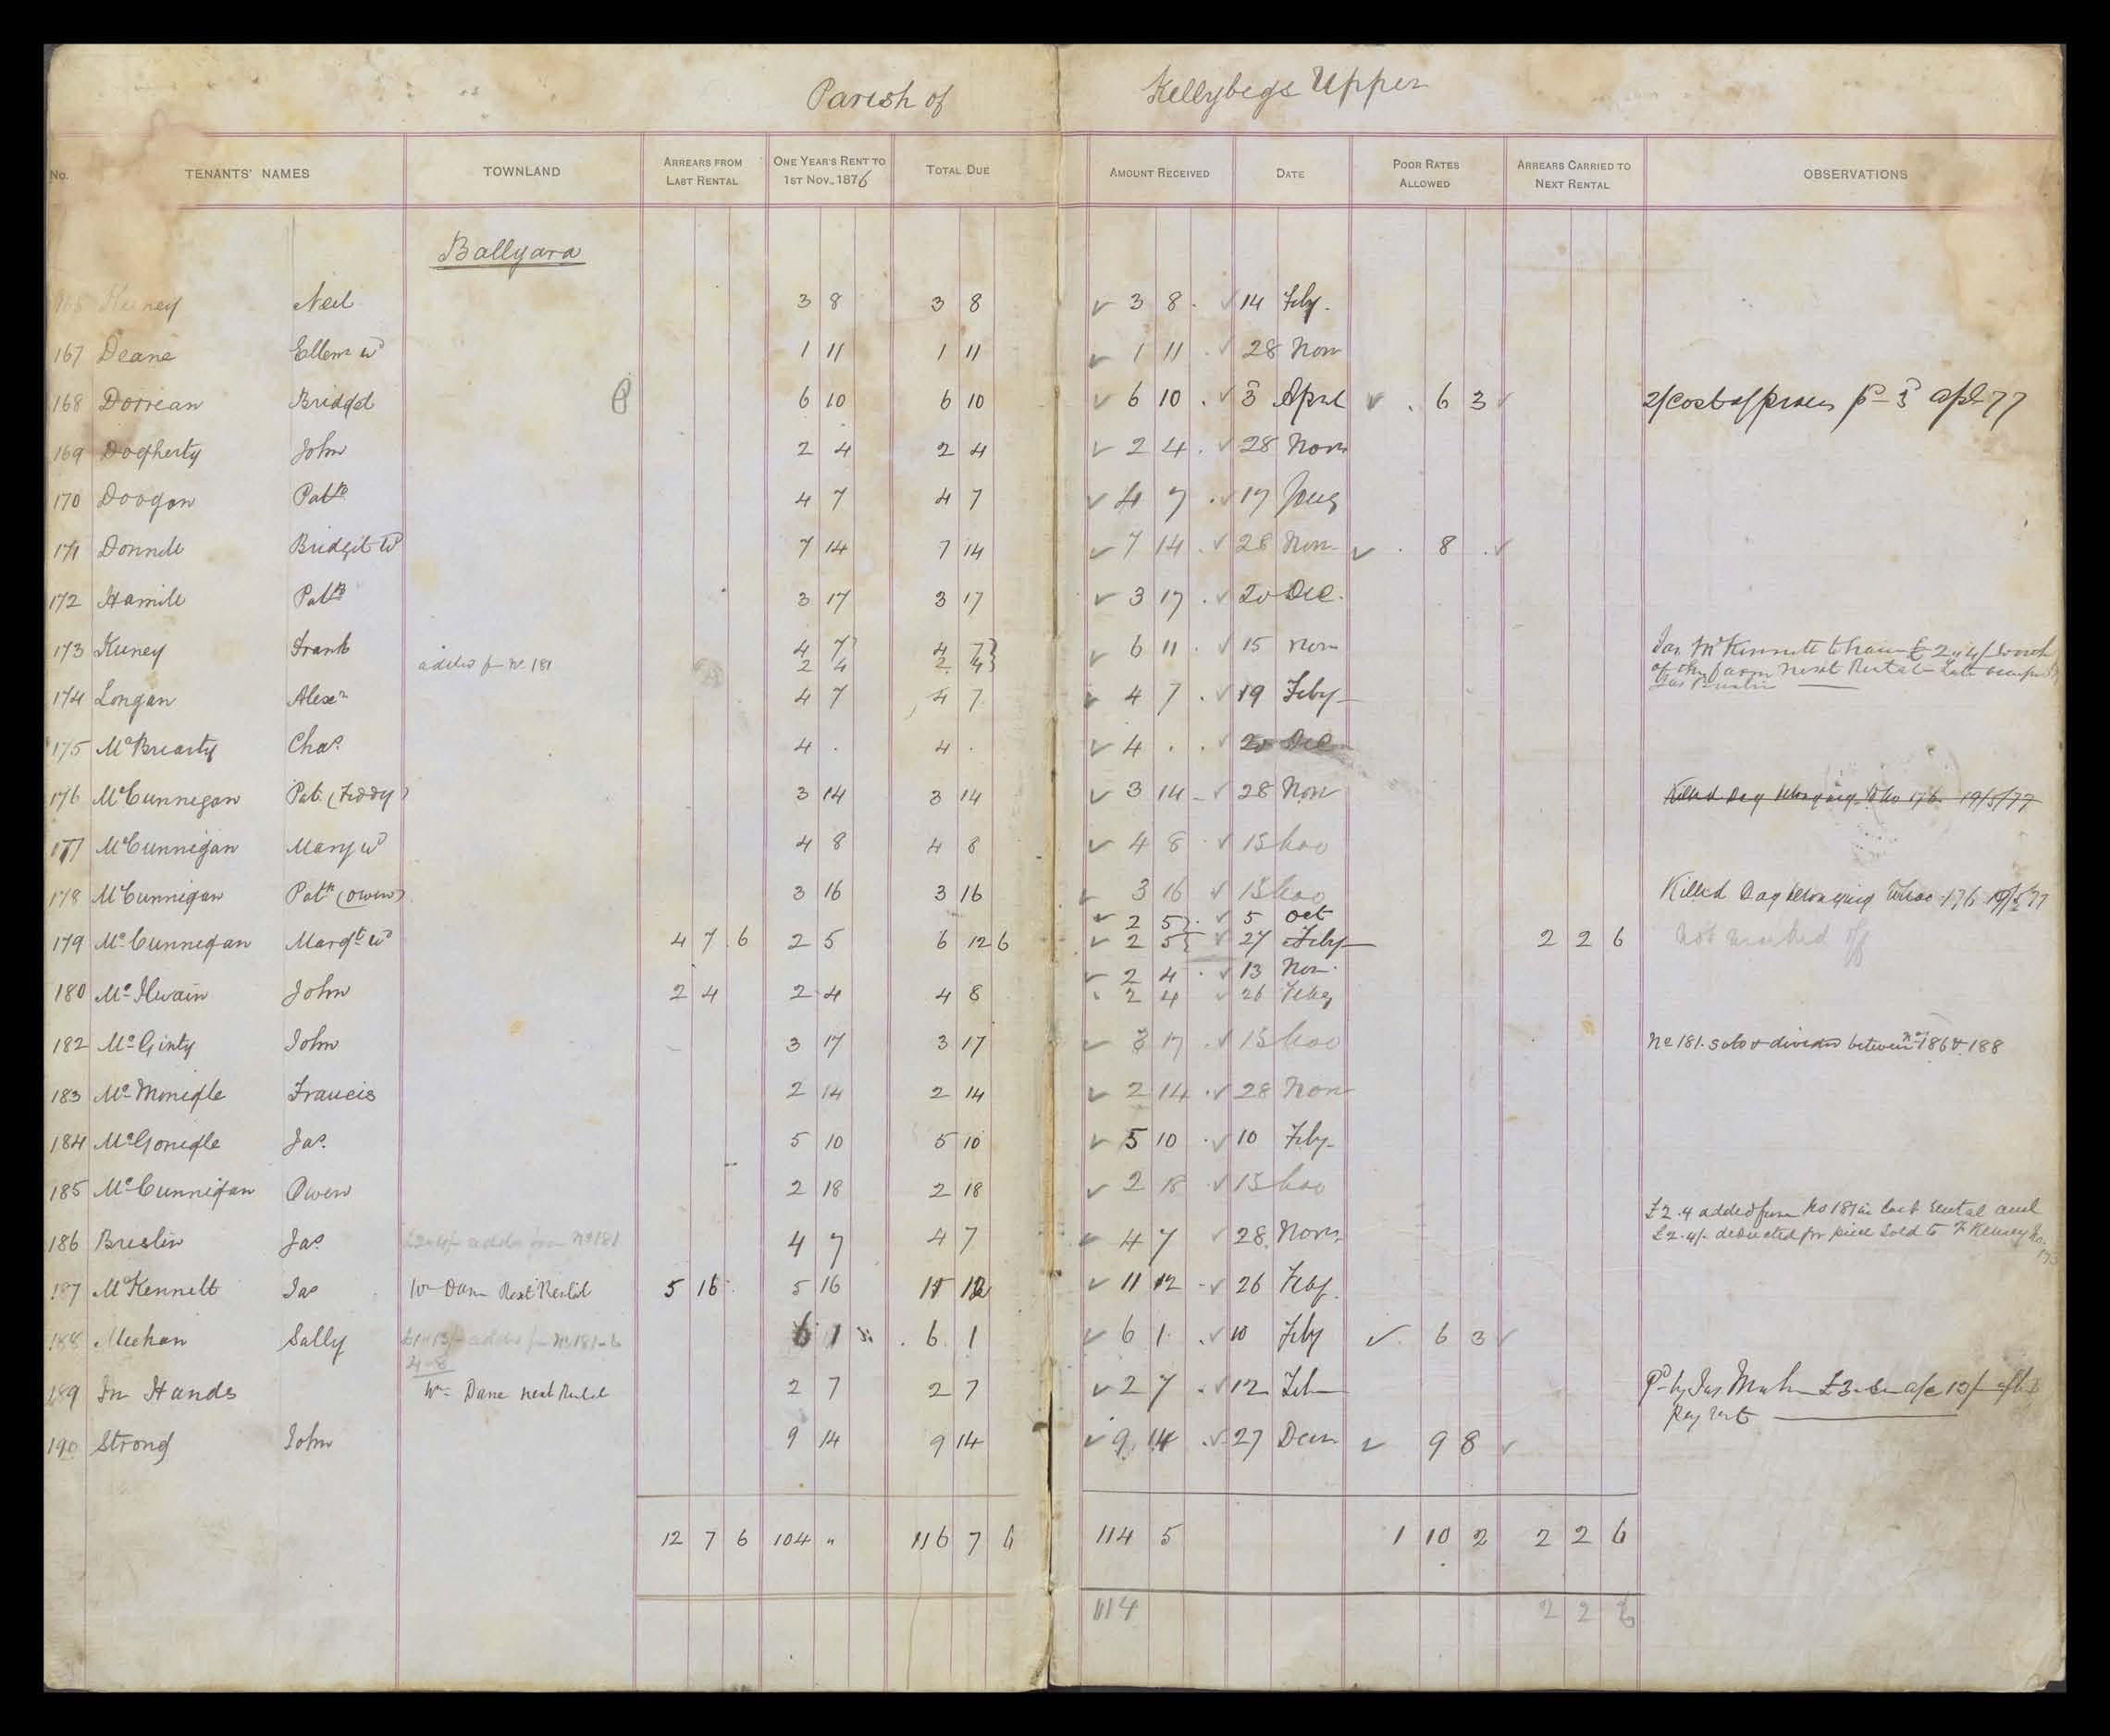 Parish of Kellybegs Upper
No. TENANTS' NAMES TOWNLAND ARREARS FROM LAST RENTAL ONE YEAR'S RENT TO 1ST NOV. 1876 TOTAL DUE AMOUNT RECEIVED DATE POOR RATES ALLOWED ARREARS CARRIED TO NEXT RENTAL OBSERVATIONS
Ballyara
Neil 3 8 3 8 ✓ 3 8 . ✓ 14 Feby.
167 Deane Ellen Wd 1 11 1 11 ✓ 1 11 . ✓ 28 Nov
168 Dorrean Bridget 6 10 6 10 ✓ 6 10 . ✓ 3 April ✓ . 6 3 ✓ 2/ cost of process pd 3 apl 77
169 Dogherty John 2 4 2 4 ✓ 2 4 . ✓ 28 Nov
170 Doogan Patk 4 7 4 7 ✓ 4 7 . ✓ 17
171 Donnell Bridgit Wd 7 14 7 14 ✓ 7 14 . ✓ 28 Nov. ✓ . 8 . ✓
172 Hamill Patk 3 17 3 17 ✓ 3 17 . ✓ 20 Dec.
173 Keeney Frank 4 7 4 7 ✓ 6 11 . ✓ 15 Nov
added fm No 181 2 4 2 4
Jas McKennett to have £2"4/ worth
of the farm next Rental - late
Jas Breslin
174 Longan Alexr 4 7 4 7 ✓ 4 7 . ✓ 19 Feby
175 McBrearty Chas. 4 . 4 . ✓ 4 . . ✓ 20 Dec
176 McCunnegan Pat. (Feddy) 3 14 3 14 ✓ 3 14 ✓ 28 Nov Killed Dog belonging to No 176. 19/5/77
177 McCunnigan Mary Wd 4 8 4 8 ✓ 4 8 . ✓ 15 Nov
178 McCunnigan Patk (Owen) 3 16 3 16 ✓ 3 16 ✓ 15 Nov Killed Dog belonging to No 176 19/5/77
✓ 2 5 . ✓ 5 Oct
179 McCunnegan Margt Wd 4 7 6 2 5 6 12 6 ✓ 2 5 ✓ 27 Feby 2 2 6 not marked off
✓ 2 4 . ✓ 13 Nov.
180 McIlwain John 2 4 2 4 4 8 2 4 ✓ 26 Feby
182 McGinty John 3 17 3 17 ✓ 3 17 . ✓ 15 Nov No 181. sold & divided between Nos 186 & 188
183 McMonigle Francis 2 14 2 14 ✓ 2 14 . ✓ 28 Nov
184 McGonigle Jas. 5 10 5 10 ✓ 5 10 . ✓ 10 Feby
185 McCunnigan Owen 2 18 2 18 ✓ 2 18 . ✓ 15 Nov
£2.4 added from No 181 in last rental and
186 Breslin Jas. £2"4/- added from No 181 4 7 4 7 ✓ 4 7 ✓ 28 Nov £2.4/- deducted for piece sold to F Keeney No. 173
187 McKennett Jas Wm Dane Next Rental 5 16 5 16 11 12 ✓ 11 12 - ✓ 26 Feby.
188 Meehan Sally added fm No 181 6 1 6 1 ✓ 6 1 . ✓ 10 Feby ✓ . 6 3 ✓
189 In Hands Wm Dane next Rental 2 7 2 7 ✓ 2 7 . ✓ 12 Feb Pd by Jas
190 Strong John 9 14 9 14 ✓ 9 14 . ✓ 27 Decr ✓ 9 8 ✓
12 7 6 104 " 116 7 6 114 5 1 10 2 2 2 6
114 2 2 6